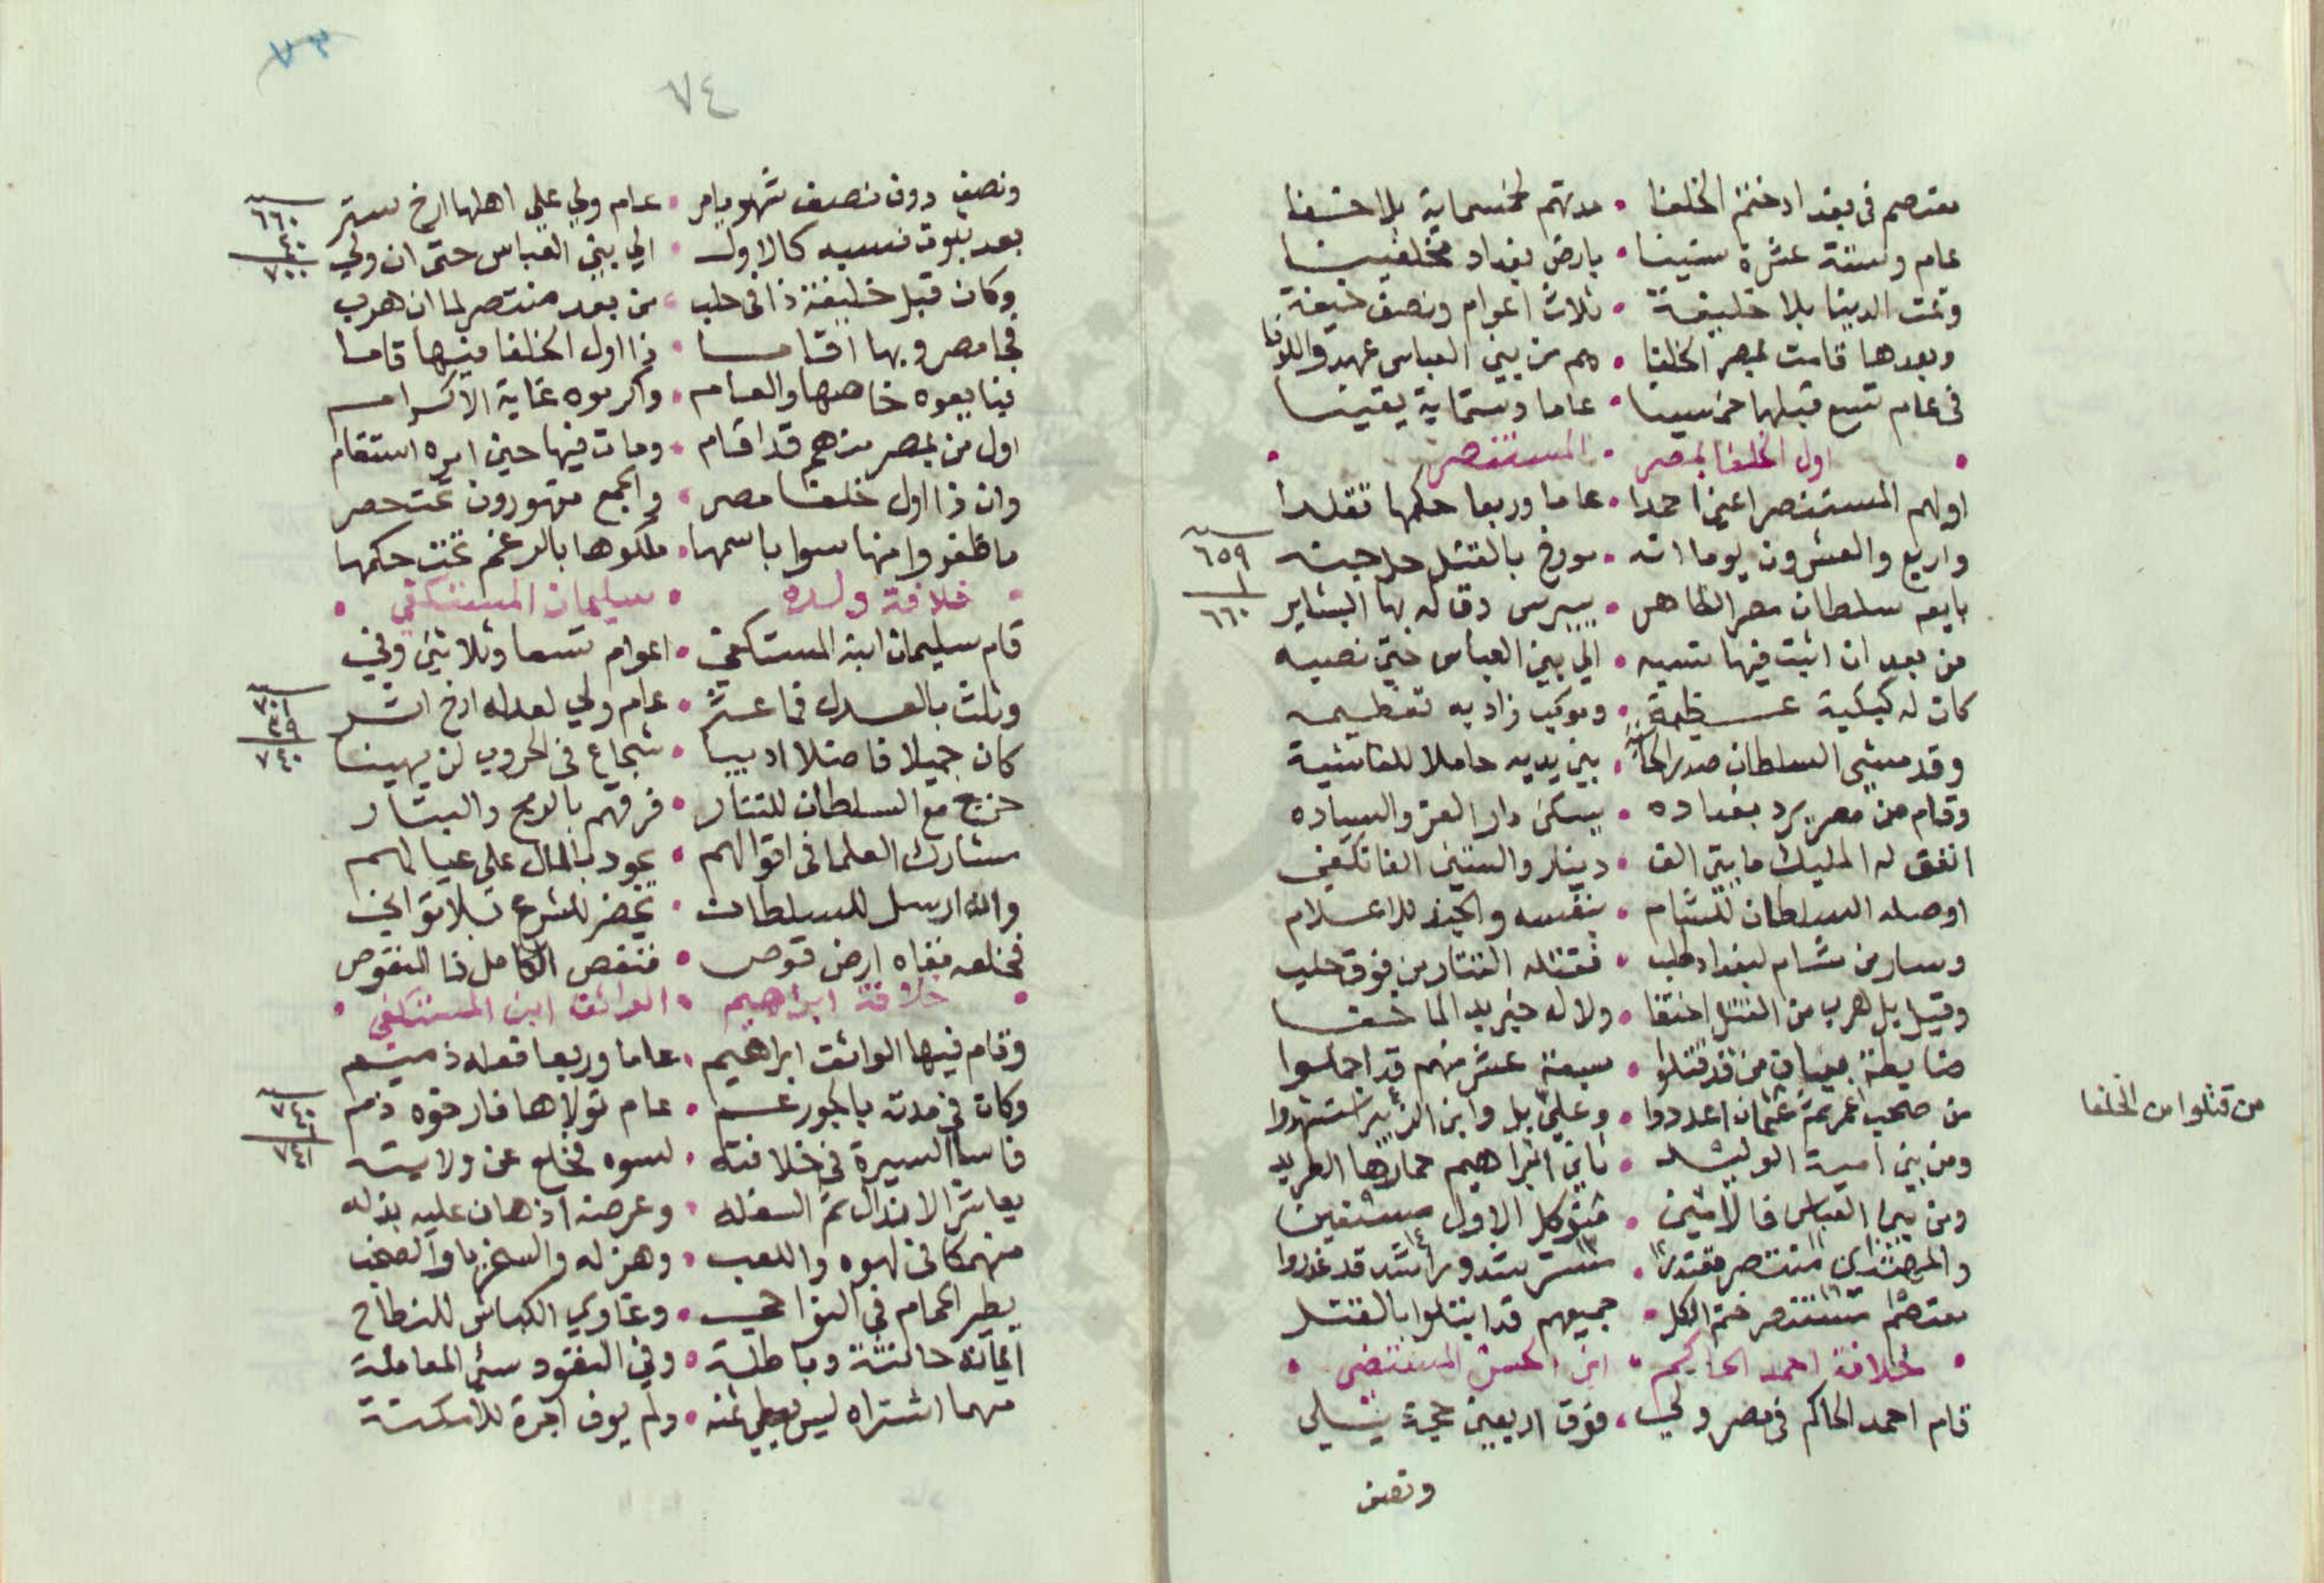 معتصم فى بغداد ختم الخلفا • مدتهم خمسماية بلا خفا
عام وستة عشرة سنينا • بارض بغداد مخلفينا
وتمت الدينا بلا خليفة • ثلاث اعوام ونصف خيفة
وبعدها قامت بمصر الخلفا • هم من بنى العباس عهد
فى عام تسع قبلها خمسينا • عاما وستماية يقينا
• اول الخلفا بمصر • المستنصر •
اولهم المستنصر اعنى احمدا • عاما وربعا حكمها تقلدا
واربع والعشرون يوما انه • مورخ بالقتل حل جنته
٦٥٩
١
٦٦٠
بايعه سلطان مصر الظاهر • بيبرس دقا له بها البشاير
من بعد ان اثبت فيها نسبه • الي بنى العباس حتى نصبه
كان له كبكبة عظيمة • وموكب زاد به تعظيمه
وقد مشى السلطان صدر • بين يديه حاملا للغاشية
وقام من مصر يرد بغداده • يسكن دار العز والسياده
انفق له المليك مايتى الف • دينار والستين الفا تكفى
اوصله السلطان للشام • بنفسه والجند للاعلام
وسار من شام لبغداد طلب • فقتله التتار من فوق حلب
وقيل بل هرب من القتل اختفا • ولا له خبر بد لما خفا
ضابطة بعيان من قد قتلوا • سبعة عشر منهم قد اجملوا
من قتلوا من الخلفا
من صحب عمر ثم عثمان اعددوا • وعلى بل وابن الزبير استشهدوا
ومن بنى امية الوليد • ثانى ابراهيم حمارها الطريد
ومن بنى العباس فالامين • متوكل الاول مستعين
والمهتدى منتصر مقتدر • مسترشد وراشد قد غدروا
معتصم مستنصر ختم الكل • جميعهم قد ابتلوا بالقتل
• خلافة احمد الحاكم • ابن الحسن المستضى •
قام احمد الحاكم فى مصر ولي • فوق اربعين حجة يلي
ونصف
٧٣
٧٤
ونصف دون نصف شهر يامر • عام ولي على اهلها ارخ ستر
٦٦٠
٤٠
٧٠٠
بعد ثبوت نسبه كالاول • الي بنى العباس حتى ان ولي
وكان قبل خليفة ذا فى حلب • من بعد منتصر لما ان هرب
فجا مصر وبها اقاما • ذا اول الخلفا فيها قاما
فبايعوه خاصها والعام • واكرموه غاية الاكرام
اول من بمصر منهم قد اقام • ومات فيها حين امره استقام
وان ذا اول خلفا مصر • والجمع مقهورون تحت حصر
ما ظفروا منها سوا باسمها • ملكوها بالرغم تحت حكمها
• خلافة ولده • سليمان المستكفي •
قام سليمان ابنه المستكفي • اعوام تسعا وثلاثين وفي
وثلث بالعدل فما عثر • عام ولي لعدله ارخ اشر
٧٠١
٣٩
٧٤٠
كان جميلا فاضلا اديبا • شجاع فى الحروب لن يهينا
خرج مع السلطان للتتار • فرقهم بالرمح والبتار
شارك العلما فى اقوالهم • يجود بالمال على عيالهم
والله ارسل للسلطان • يحضر للشرع بلا تواني
فخلعه نفاه ارض قوص • فنقص الكامل ذا النقوص
• خلافة ابراهيم • الواثق ابن المستكفي •
وقام فيها الواثق ابراهيم • عاما وربعا فعله ذميم
وكان فى مدته بالجور عم • عام تولاها فارخوه ذم
٧٤٠
١
٧٤١
فاسا السيرة فى خلافته • لسوه فخلع عن ولايته
يعاشر الانذال ثم السفله • وعرضه اذ هان عليه بذله
منهمكا فى لهوه واللعب • وهزله والسخريا والصخب
يطير الحمام فى النواحى • وغاوي الكباش للنطاح
ايمانه حانثة وباطلة • وفى النقود سئى المعاملة
مهما اشتراه ليس يعطي ثمنه • ولم يوف اجرة للامكنة